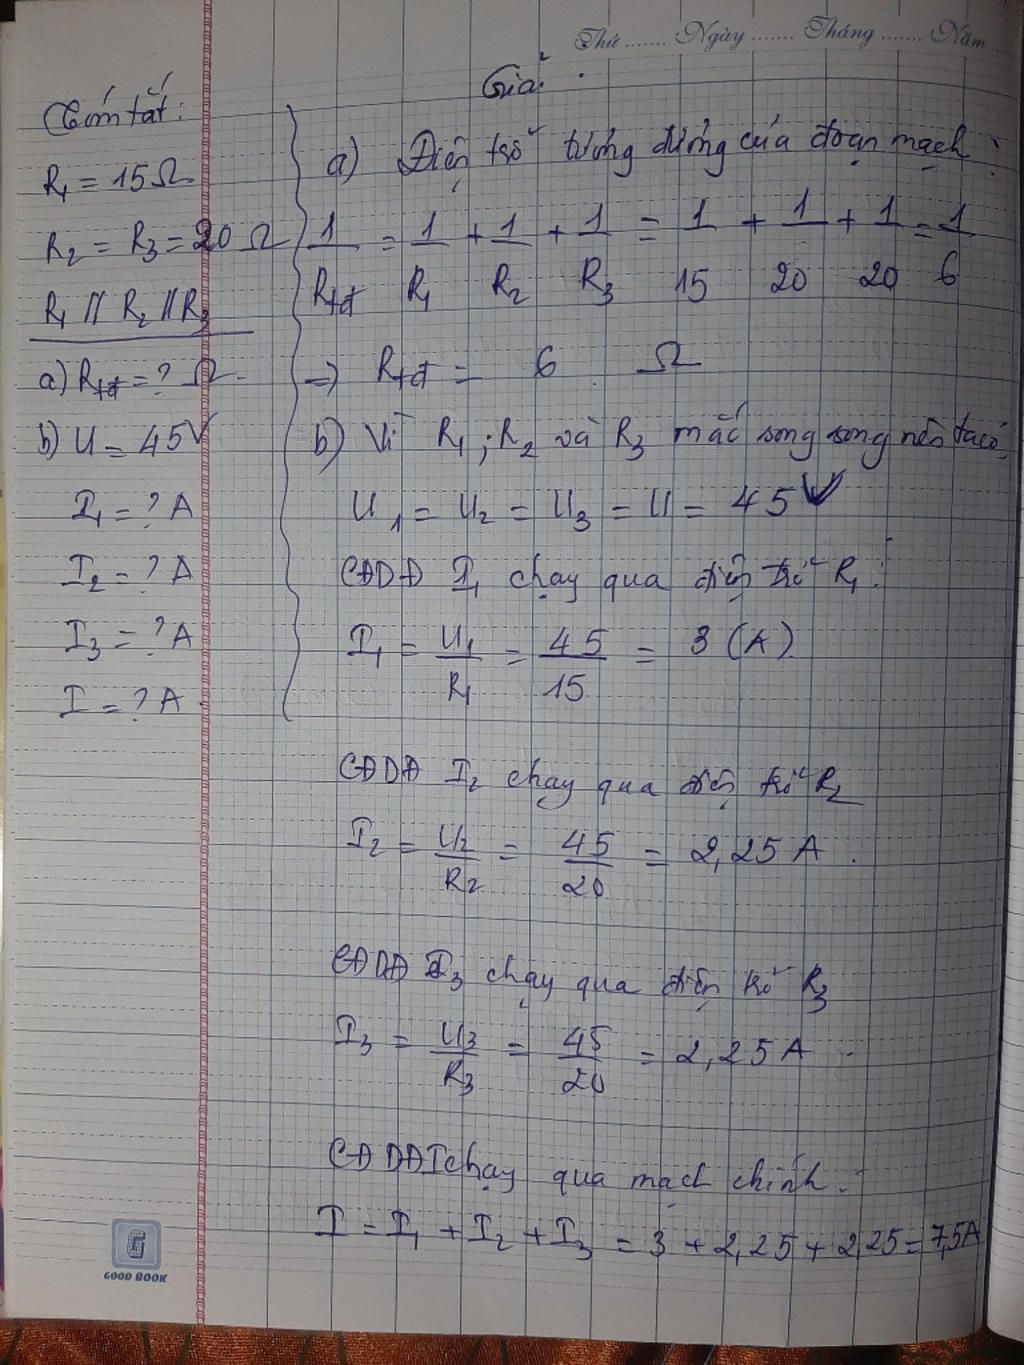 Thứ ....... Ngày ....... Tháng ....... Năm ....
Giải:
Tóm tắt:
R1 = 15Ω
R2 = R3 = 20 Ω
R1 // R2 // R3
a) Rtđ = ? Ω.
b) U = 45V
I1 = ? A
I2 = ? A
I3 = ? A
I = ? A
a) Điện trở tương đương của đoạn mạch:
1/Rtđ = 1/R1 + 1/R2 + 1/R3 = 1/15 + 1/20 + 1/20 = 1/6
=> Rtđ = 6 Ω
b) Vì R1 ; R2 và R3 mắc song song nên ta có:
U1 = U2 = U3 = U = 45 V
CĐDĐ I1 chạy qua điện trở R1:
I1 = U1/R1 = 45/15 = 3 (A).
CĐDĐ I2 chạy qua điện trở R2
I2 = U2/R2 = 45/20 = 2,25 A.
CĐDĐ I3 chạy qua điện trở R3
I3 = U3/R3 = 45/20 = 2,25 A.
CĐDĐ I chạy qua mạch chính:
I = I1 + I2 + I3 = 3 + 2,25 + 2,25 = 7,5A
G
GOOD BOOK